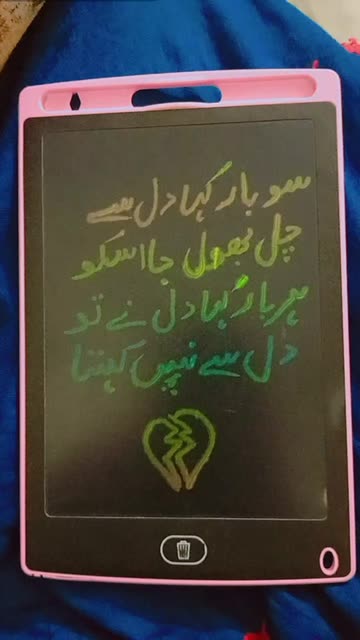 سو بار کہا دل سے
چل بھول جا اسکو
ہر بار کہا دل نے تو
دل سے نہیں کہتا